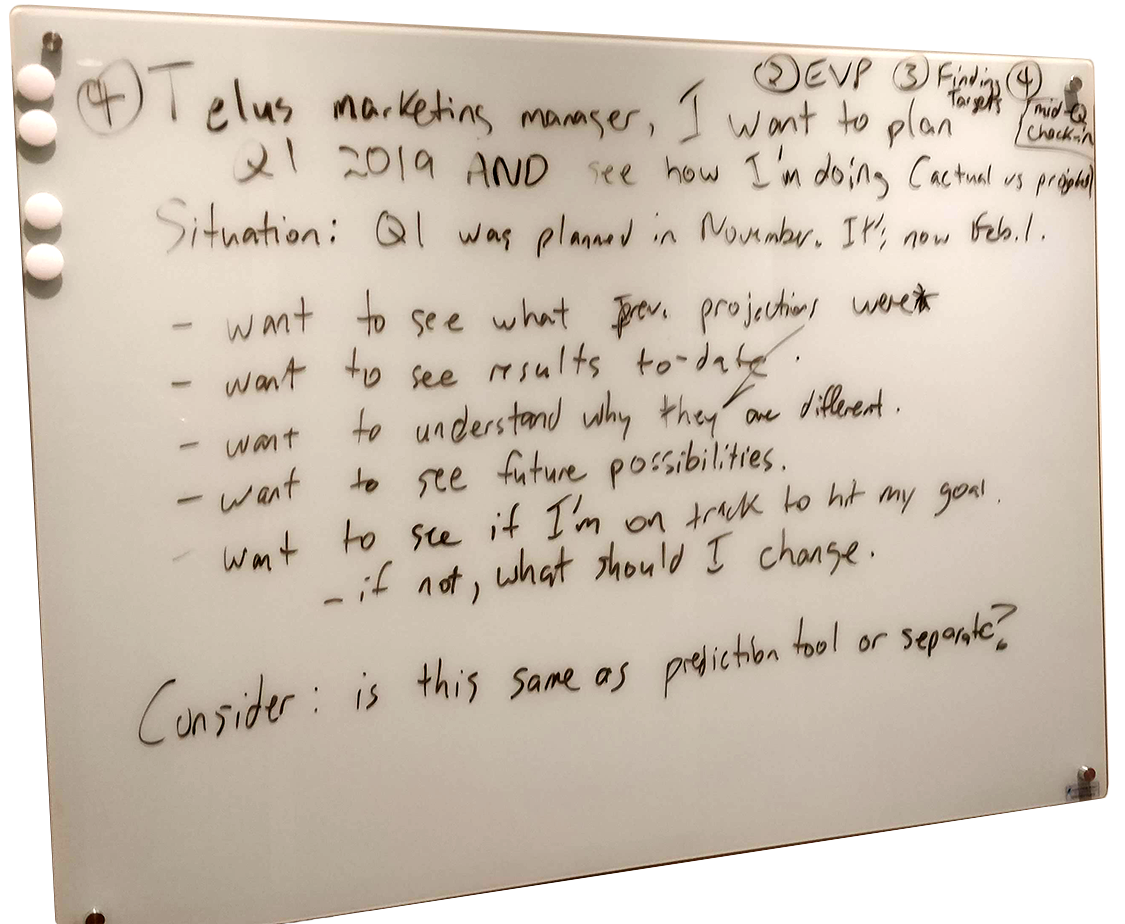 ② EVP ③ Finding Targets ④ mid-Q check-in
④ Telus marketing manager, I want to plan
Q1 2019 AND see how I'm doing (actual vs
Situation: Q1 was planned in November. It's now Feb. 1.
- want to see what prev. projections were*
- want to see results to-date.
- want to understand why they are different.
- want to see future possibilities.
- want to see if I'm on track to hit my goal.
- if not, what should I change.
Consider: is this same as prediction tool or separate?